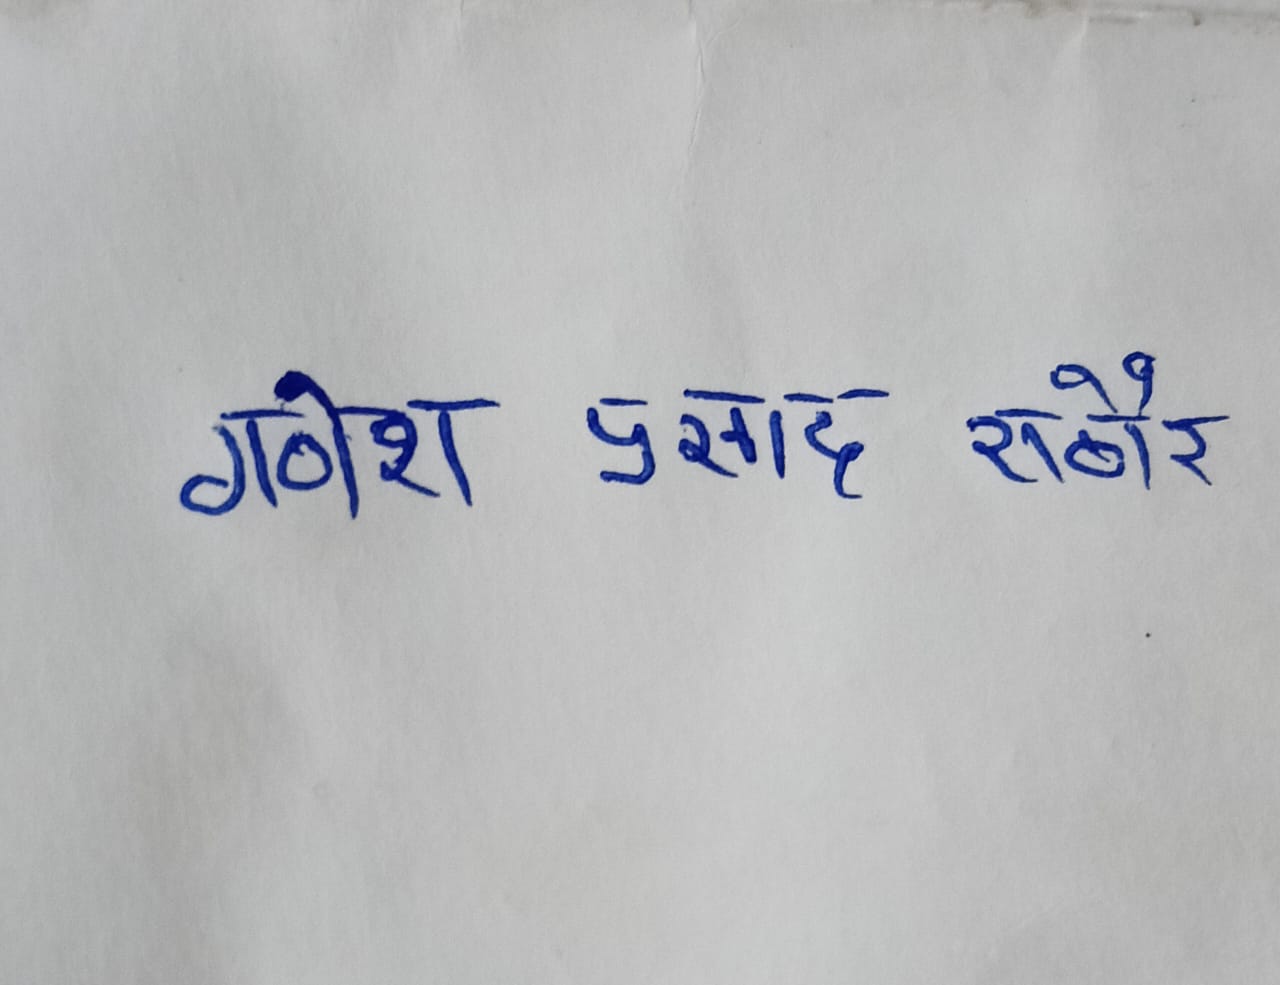 गणेश प्रसाद राठौर